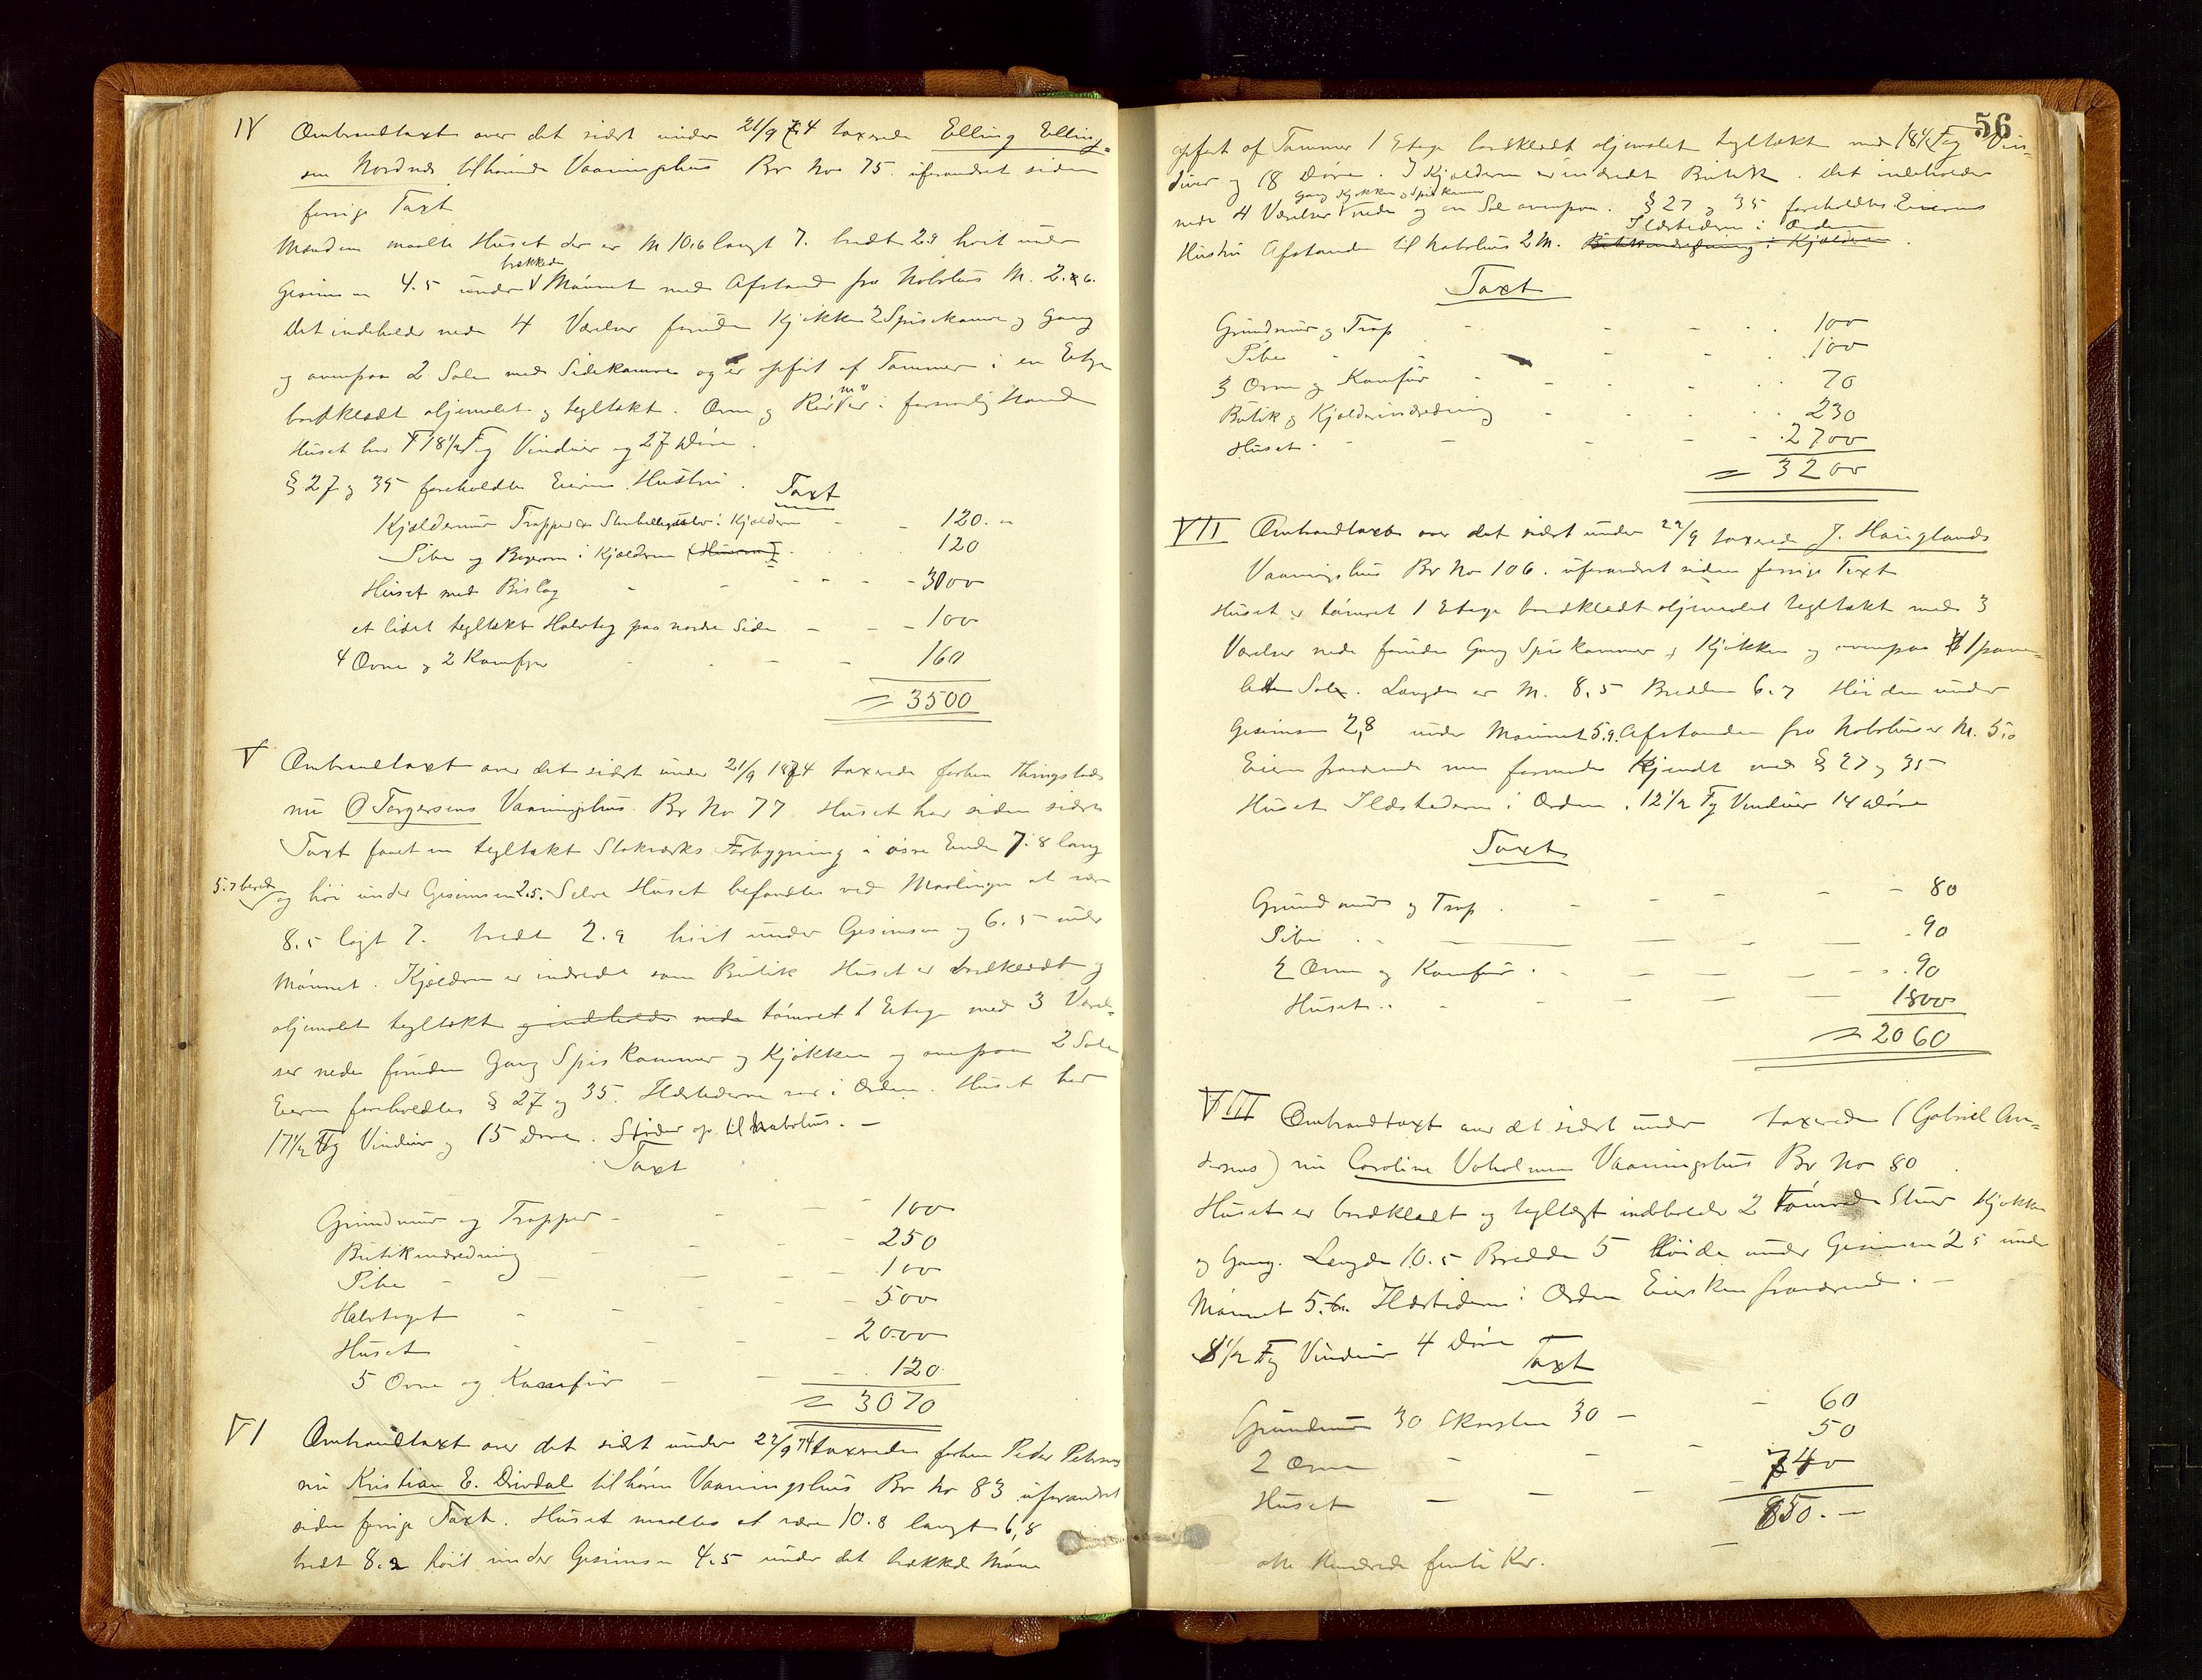 IV Ombrandtaxt over det sidst under 21/9 74 taxerede Elling Elling-
sen Nordnæs tilhørende Vaaningshus Br No 75. uforandret siden
forrige Taxt
Mændene maalte Huset der er M 10,6 langt 7. bredt 2.9 høit under
Gesimsen 4.5 under brækkede Mønnet med Afstand fra Nabohus M. 2.6.
Det indeholder nede 4 Værelser foruden Kjøkken 2 Spisekamre og Gang
og ovenpaa 2 Sale med Sidekamre og er opført af Tømmer i en Etage
bordklædt oljemalet og tegltækt. Ovne og Rør m v var i forsvarlig Stand
Huset har 18 1/2 Fag Vinduer og 27 Døre.
§ 27 og 35 foreholdtes Eierens Hustru.
Taxt
Kjældermur Trapper i Kjælderen - - 120. "
Pibe og Bagerovn i Kjælderen (Huset) 120
Huset med Bislag - - - 3000
et lidet tegltækt Halvtag paa nordre Side - - - 100
4 Ovne og 2 Komfyr - - - 160
= 3500
V Ombrandtaxt over det sidst under 21/9 1874 taxerede forhen Thingstads
nu O Torgersens Vaaningshus Br No 77 Huset har siden sidste
Taxt faaet en tegltækt Stokværks Forbygning i øsre Ende 7.8 lang
5.7 bred og høi under Gesimsen 2.5. Selve Huset befandtes ved Maalingen at være
8.5 lgt 7. bredt 2.9 høit under Gesimsen og 6.5 under
Mønnet. Kjælderen er indredet som Butik Huset er bordklædt og
oljemalet tegltækt og indeholder nede tømret 1 Etage med 3 Værel-
ser nede foruden Gang Spiskammer og Kjøkken og ovenpaa 2 Sale
Eieren foreholdtes § 27 og 35. Ildstederne var i Orden. Huset har
17 1/2 Fg Vinduer og 15 Døre. Støder op til Nabohus. -
Taxt
Grundmur og Trapper - - - 100
Butikindredning - - - 250
Pibe - - - - 100
Halvtaget - - - 500
Huset - - - 2000
5 Ovne og Komfur - - - 120
= 3070
VI Ombrandtaxt over det sidst under 22/9 74 taxerede forhen Peder Petersens
nu Kristian E. Drivdal tilhøren Vaaningshus Br No 83 uforandret
siden forrige Taxt. Huset maaltes at være 10.8 langt 6,8
bredt 8.2 høit under Gesimsen 4.5 under det brækkede Møne
56
opført af Tømmer 1 Etage bordklædt oljemalet tegltækt med 18 1/2 Fg Vin-
duer og 18 Døre. I Kjælderen er indredt Butik. Det indeholder
nede 4 Værelser Gang Kjøkken og Spiskammer nede og en Sal ovenpaa. § 27 og 35 foreholdtes Eierens
Hustru Afstanden til Nabohus 2 M. Ildstederne i Orden Butikindredning i Kjælderen.
Taxt
Grundmur og Trap - - - 100
Pibe - - - 100
3 Ovne og Komfur - - - 70
Butik og Kjælderindredning - - - 230
Huset - - - 2700
= 3200
VII Ombrandtaxt over det sidst under 22/9 taxerede J. Hauglands
Vaaningshus Br No 106. uforandret siden forrige Taxt
Huset er tømret 1 Etage bordklædt oljemalet tegltækt med 3
Værelser nede foruden Gang Spiskammer og Kjøkken og ovenpaa 1 pane-
let Sal. Længden er M. 8,5 Bredden 6.7 Høiden under
Gesimsen 2,8 under Mønnet 5.9. Afstanden fra Nabohus er M. 5,0
Eieren fraværende men formodes kjendt med § 27 og 35
Huset Ildstederne i Orden. 12 1/2 Fg Vinduer 14 Døre
Taxt
Grundmur og Trap - - - 80
Pibe - - - 90
2 Ovne og Komfur - - - 90
Huset - - - 1800
= 2060
VIII Ombrandtaxt over det sidst under taxerede (Gabriel An-
dersens) nu Caroline Vaholmens Vaaningshus Br No 80.
Huset er bordklædt og tegltægt indeholder 2 tømrede Stuer Kjøkken
og Gang. Længde 10.5 Bredde 5 Høide under Gesimsen 2 5 under
Mønnet 5.6. Ildstederne i Orden Eiersken fraværende. -
8 1/2 Fg Vinduer 4 Døre
Taxt
Grundmur 30 Skorsten 30 - - 60
2 Ovne - - - 50
Huset - - - 740
850. -
otte Hundrede femti Kr.